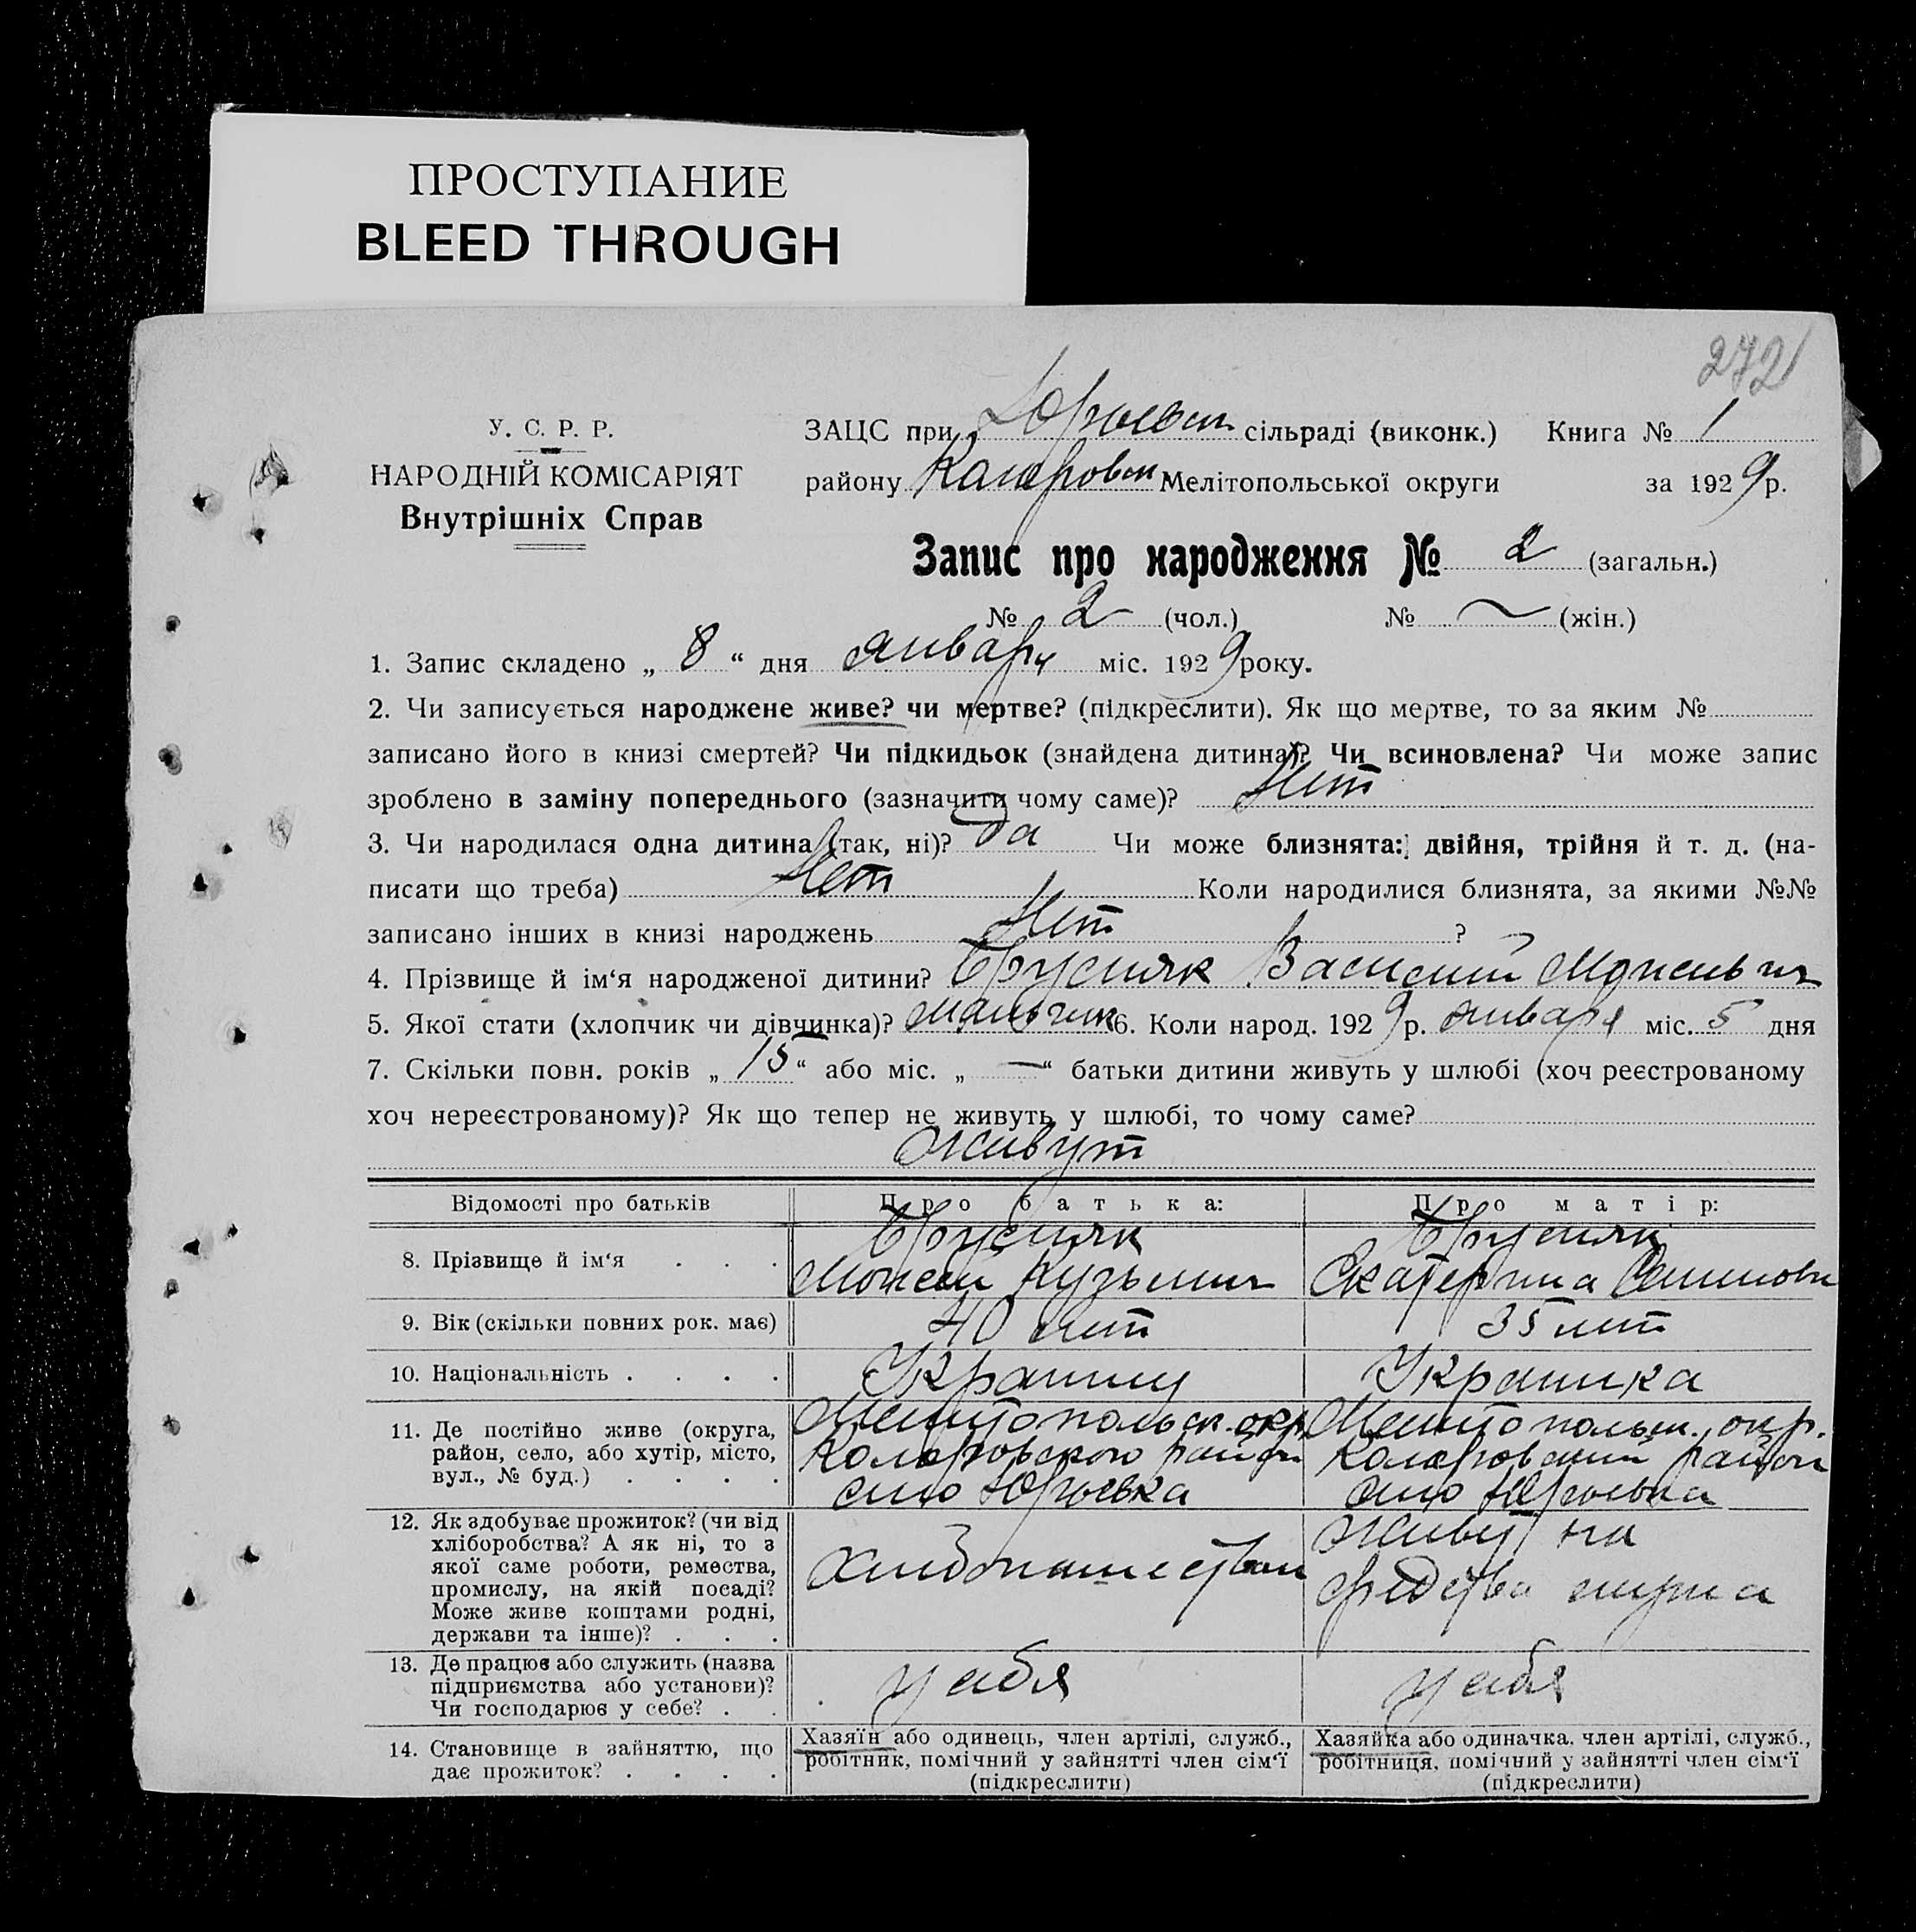 ПРОСТУПАНИЕ
BLEED THROUGH
272
У. С. Р. Р.
НАРОДНІЙ КОМІСАРІЯТ
Внутрішніх Справ
ЗАЦС при Юрьевск сільраді (виконк.) Книга № 1
району Коларовск Мелітопольської округи за 1929р.
Запис про народження № 2 (загальн.)
№ 2 (чол.) № ~ (жін.)
1. Запис складено „ 8 “ дня января міс. 1929 року.
2. Чи записується народжене живе? чи мертве? (підкреслити). Як що мертве, то за яким №
записано його в книзі смертей? Чи підкидьок (знайдена дитина)? Чи всиновлена? Чи може запис
зроблено в заміну попереднього (зазначити чому саме)? Нет
3. Чи народилася одна дитина (так, ні)? да Чи може близнята: двійня, трійня й т. д. (на-
писати що треба) Нет Коли народилися близнята, за якими №№
записано інших в книзі народжень Нет ?
4. Прізвище й ім‘я народженої дитини? Брусняк Василий
5. Якої стати (хлопчик чи дівчинка)? мальчик 6. Коли народ. 1929 р. января міс. 5 дня
7. Скільки повн. років „ 15 “ або міс. „ — “ батьки дитини живуть у шлюбі (хоч реєстрованому
хоч нереєстрованому)? Як що тепер не живуть у шлюбі, то чому саме?
живут
Відомості про батьків Про батька: Про матір:
8. Прізвище й ім‘я . . .
Брусняк
Мойсей Кузьмич
Брусняк
Екатерина
9. Вік (скільки повних рок. має) 40 лет 35 лет
10. Національність . . . . Украинец Украинка
11. Де постійно живе (округа,
район, село, або хутір, місто,
вул., № буд.) . . . .
Мелитопольск. окр.
Коларовского район
село Юрьевка
Мелитопольск. окр.
Коларовский район
село Юрьевка
12. Як здобуває прожиток? (чи від
хліборобства? А як ні, то з
якої саме роботи, ремества,
промислу, на якій посаді?
Може живе коштами родні,
держави та інше)? . . .
хлебопашеством
живу на
средства мужа
13. Де працює або служить (назва
підприємства або установи)?
Чи господарює у себе? . .
у себя
у себя
14. Становище в зайняттю, що
дає прожиток? . . . .
Хазяїн або одинець, член артілі, служб.,
робітник, помічний у зайнятті член сім‘ї
(підкреслити)
Хазяйка або одиначка. член артілі, служб.,
робітниця, помічний у зайнятті член сім‘ї
(підкреслити)